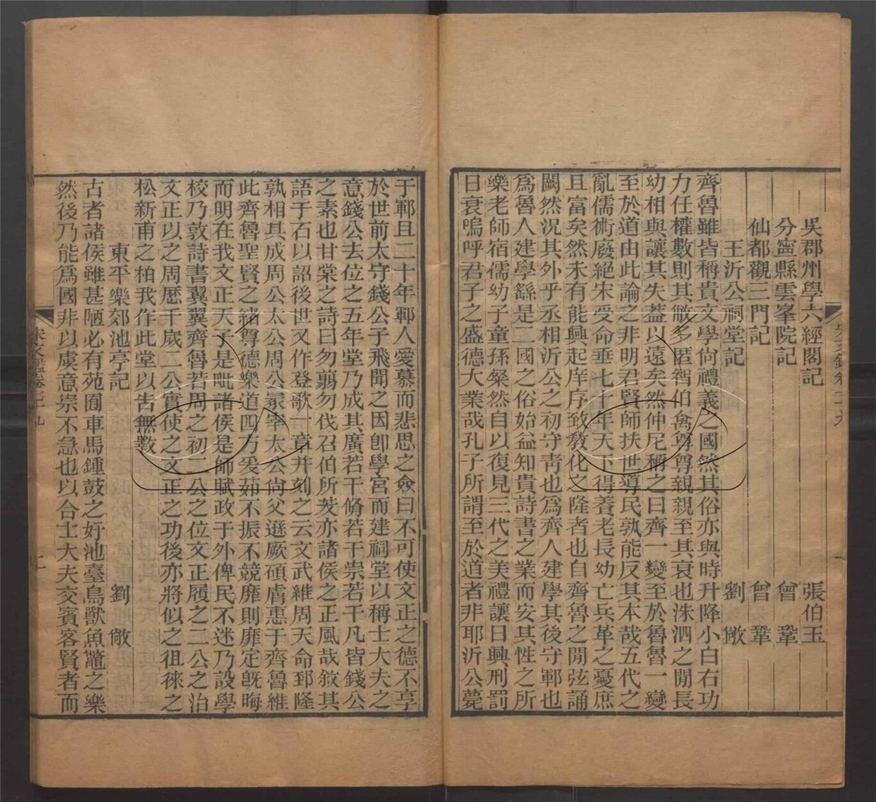 吳郡州學六經閣記 張伯玉
分寧縣雲峯院記 曾鞏
仙都觀三門記 曾鞏
王沂公祠堂記 劉敞
齊魯雖皆稱貴文學尙禮義之國然其俗亦與時升降小白右功
力任權數則其敝多匿智伯禽尊尊親親至其衰也洙泗之閒長
幼相與讓其失益以遠矣然仲尼稱之曰齊一變至於魯魯一變
至於道由此論之非明君賢師扶世導民孰能反其本哉五代之
亂儒術廢絕宋受命垂七十年天下得養老長幼亡兵革之憂庶
且富矣然未有能興起庠序致敎化之隆者也自齊魯之閒弦誦
闕然況其外乎丞相沂公之初守靑也爲齊人建學其後守鄆也
爲魯人建學繇是二國之俗始益知貴詩書之業而安其性之所
樂老師宿儒幼子童孫粲然自以復見三代之美禮讓日興刑罰
日衰嗚呼君子之盛德大業哉孔子所謂至於道者非耶沂公薨
于鄆且二十年鄆人愛慕而悲思之僉曰不可使文正之德不享
於世前太守錢公子飛聞之因卽學宮而建祠堂以稱士大夫之
意錢公去位之五年堂乃成其廣若干脩若干崇若干凡皆錢公
之素也甘棠之詩曰勿翦勿伐召伯所茇亦諸侯之正風哉敘其
語于石以詔後世又作登歌一章幷刻之云文武維周天命郅隆
孰相其成周公太公周公冢宰太公尙父遜厥碩膚惠于齊魯維
此齊魯聖賢之緒尊德樂道四方爰茹不振不競靡則靡定旣晦
而明在我文正天子是毗諸侯是師賦政于外俾民不迷乃設學
校乃敦詩書翼翼齊魯若周之初二公之位文正履之二公之治
文正以之周歷千歲二公實使之文正之功後亦將似之徂徠之
松新甫之柏我作此堂以告無斁
東平樂郊池亭記 劉敞
古者諸侯雖甚陋必有苑囿車馬鍾鼓之好池臺鳥獸魚鼈之樂
然後乃能爲國非以虞意崇不急也以合士大夫交賓客賢者而